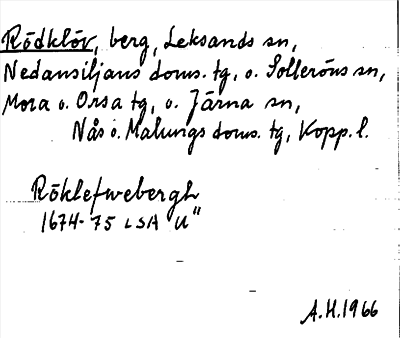 Rödklöv, berg, Leksands sn,
Nedansiljans doms. tg, o. Solleröns sn,
Mora o. Orsa tg, o. Järna sn,
Nås o. Malungs doms. tg, Kopp. l.
Röklefwebergh
1674-75 LSA U"
A.H. 1966